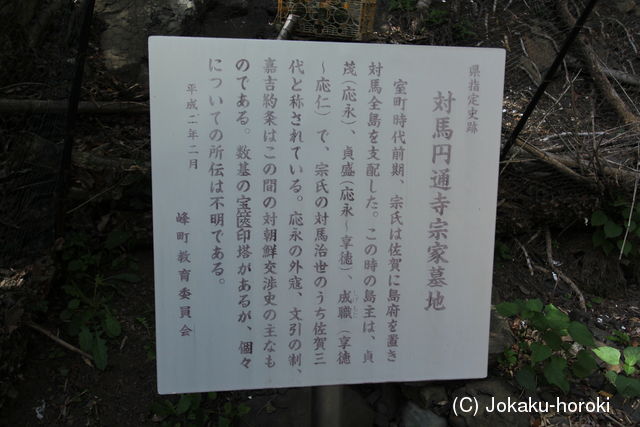 県指定史跡
対馬円通寺宗家墓地
室町時代前期、宗氏は佐賀に島府を置き
対馬全島を支配した。この時の島主は、貞
茂（応永）、貞盛（応永～享徳）、成職（享徳
しげもと
～応仁）で、宗氏の対馬治世のうち佐賀三
代と称されている。応永の外寇、文引の制、
嘉吉約条はこの間の対朝鮮交渉史の主なも
のである。数基の宝篋印塔があるが、個々
についての所伝は不明である。
平成二年二月
峰町教育委員会
(C) Jokaku-horoki